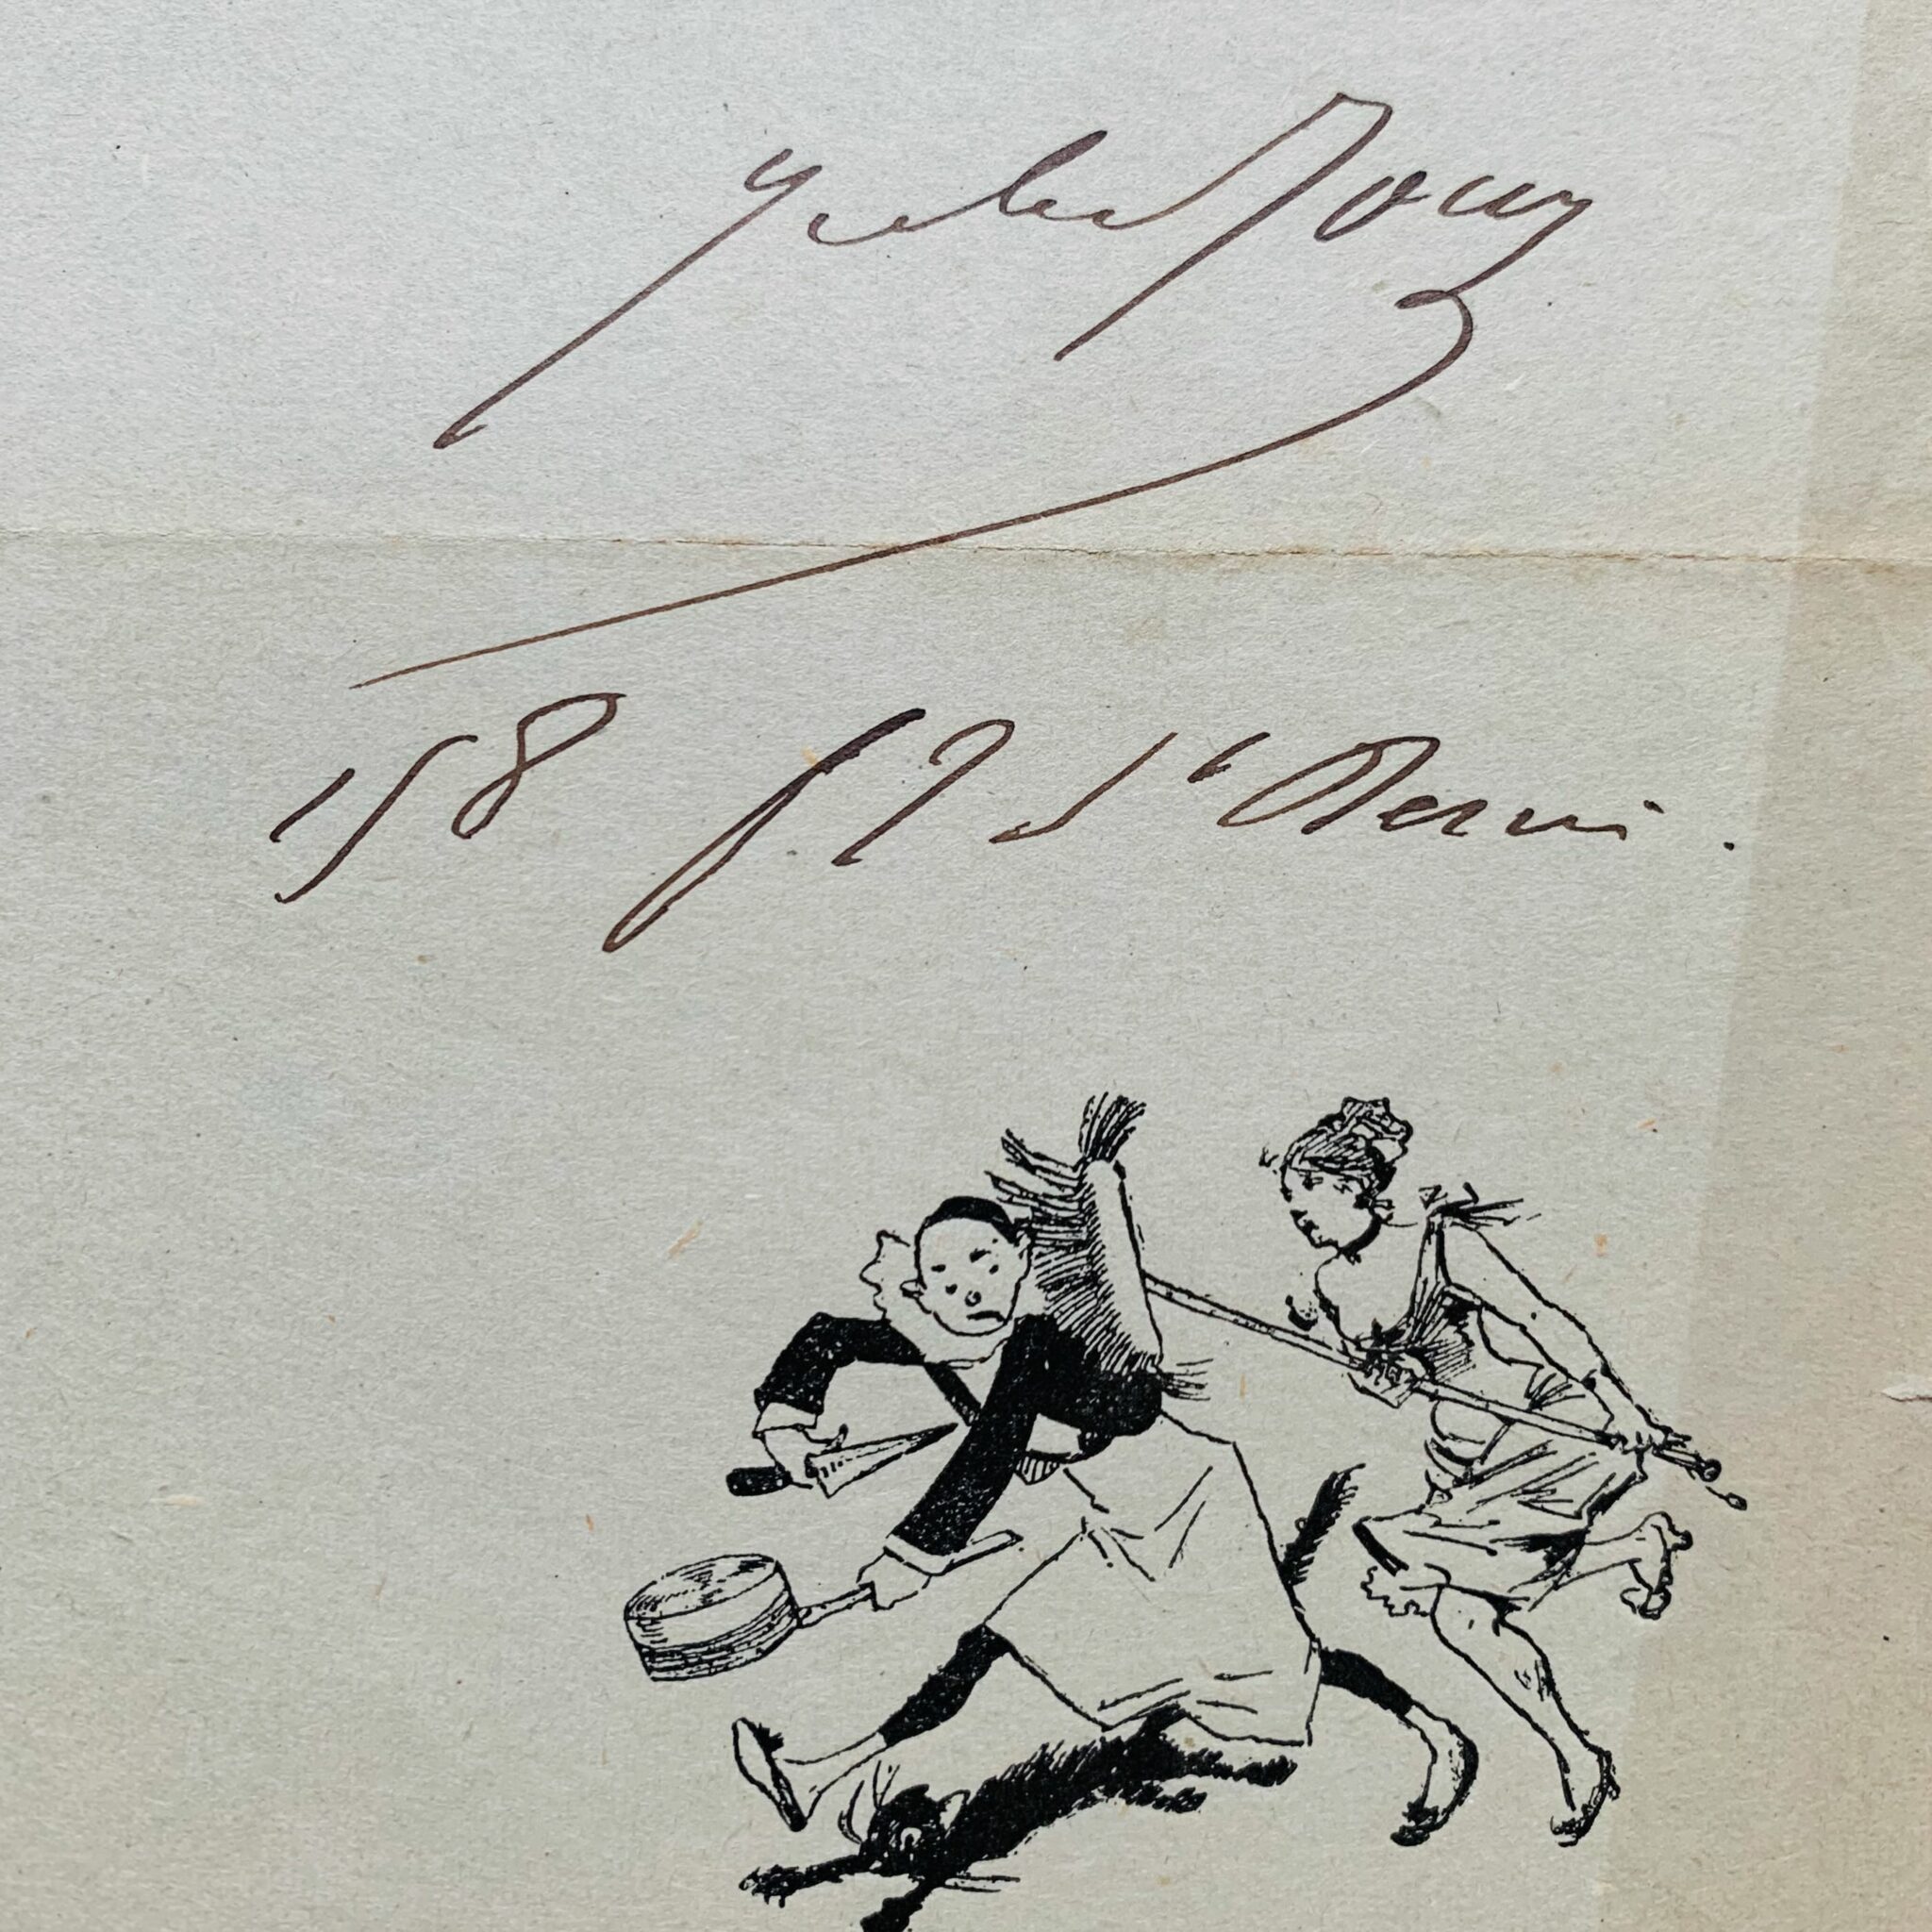 Jules Jouy
158 fg St Denis.